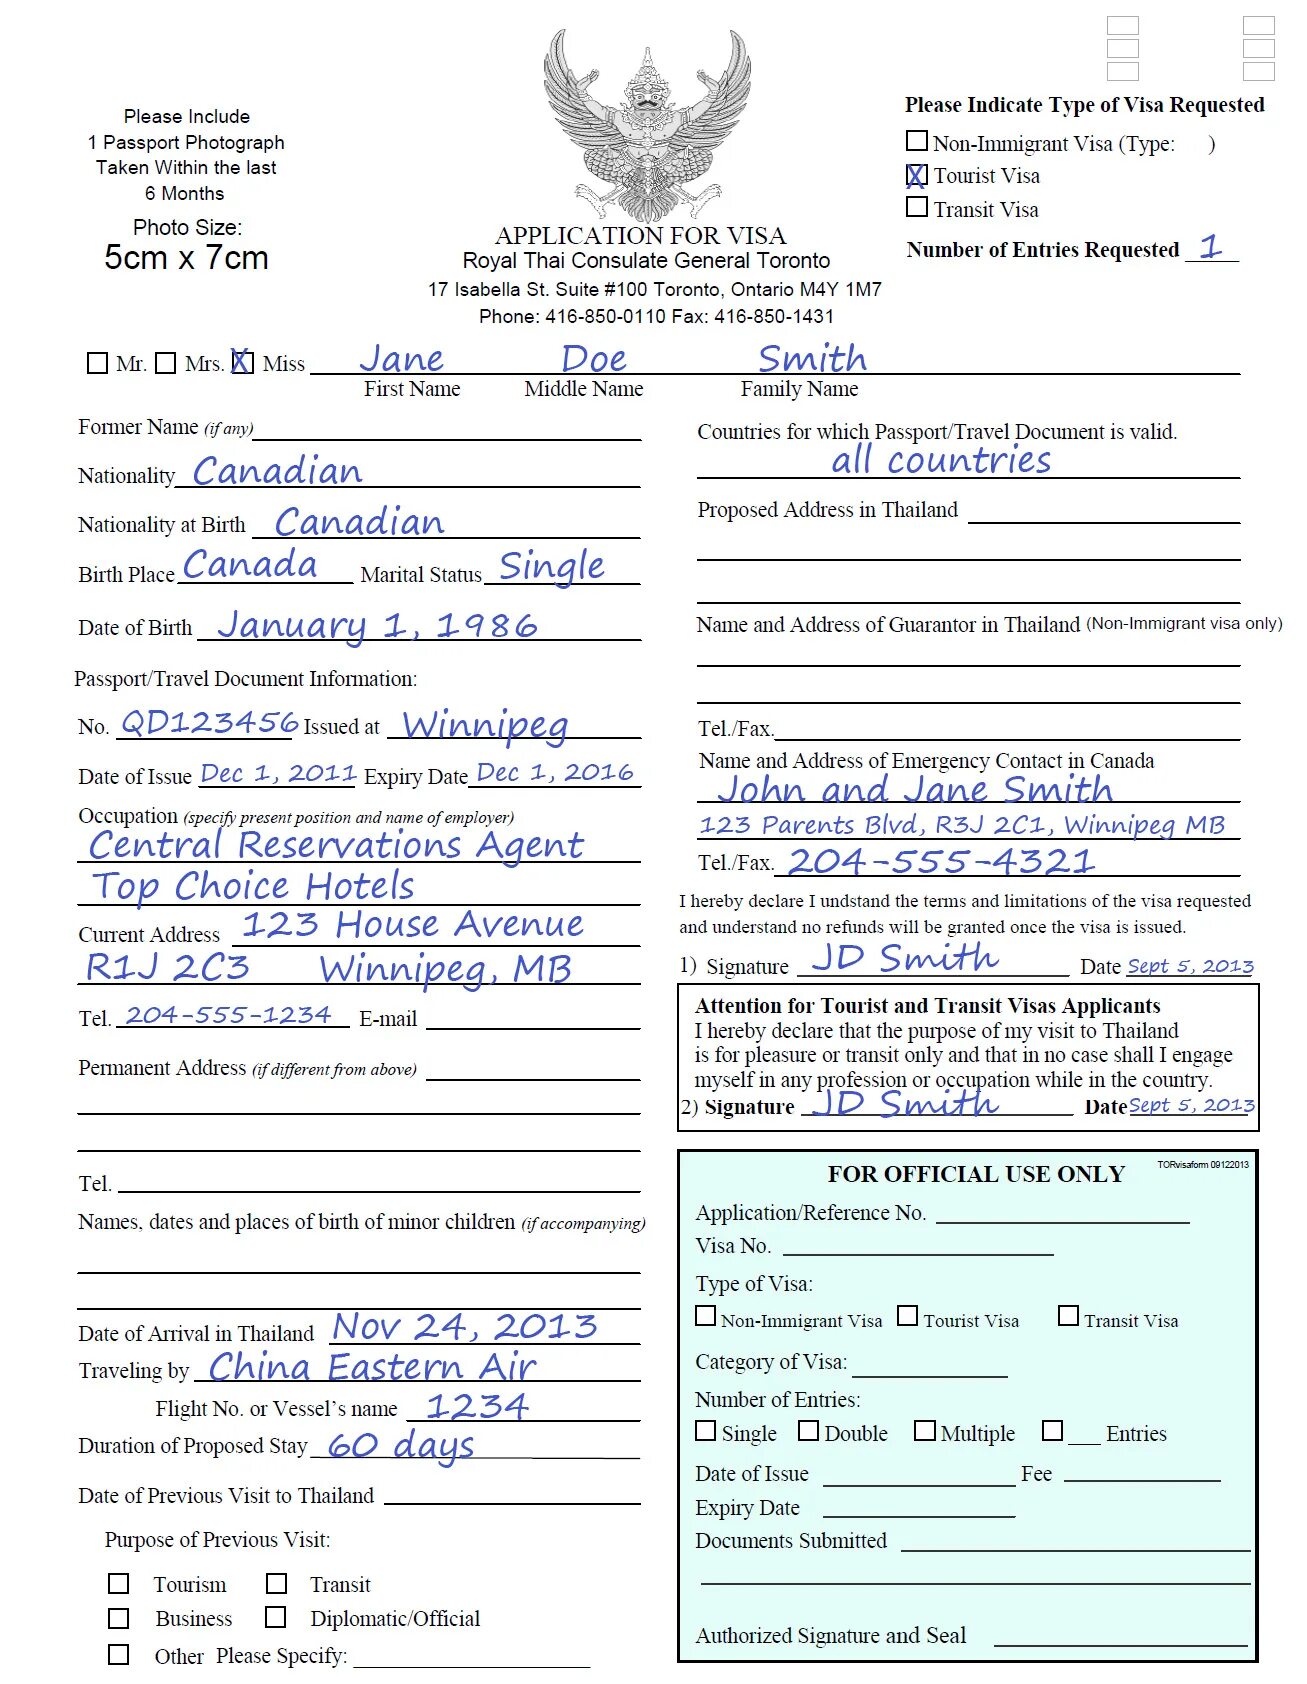 Please Include
1 Passport Photograph
Taken Within the last
6 Months
Photo Size:
5cm x 7cm
APPLICATION FOR VISA
Royal Thai Consulate General Toronto
17 Isabella St. Suite #100 Toronto, Ontario M4Y 1M7
Phone: 416-850-0110 Fax: 416-850-1431
Please Indicate Type of Visa Requested
Non-Immigrant Visa (Type: )
X Tourist Visa
Transit Visa
Number of Entries Requested 1
Mr. Mrs. X Miss Jane Doe Smith
First Name Middle Name Family Name
Former Name (if any)
Nationality Canadian
Nationality at Birth Canadian
Birth Place Canada Marital Status Single
Date of Birth January 1, 1986
Passport/Travel Document Information:
No. QD123456 Issued at Winnipeg
Date of Issue Dec 1, 2011 Expiry Date Dec 1, 2016
Occupation (specify present position and name of employer)
Central Reservations Agent
Top Choice Hotels
Current Address 123 House Avenue
R1J 2C3 Winnipeg, MB
Tel. 204-555-1234 E-mail
Permanent Address (if different from above)
Tel.
Names, dates and places of birth of minor children (if accompanying)
Date of Arrival in Thailand Nov 24, 2013
Traveling by China Eastern Air
Flight No. or Vessel's name 1234
Duration of Proposed Stay 60 days
Date of Previous Visit to Thailand
Purpose of Previous Visit:
Tourism Transit
Business Diplomatic/Official
Other Please Specify:
Countries for which Passport/Travel Document is valid.
all countries
Proposed Address in Thailand
Name and Address of Guarantor in Thailand (Non-Immigrant visa only)
Tel./Fax.
Name and Address of Emergency Contact in Canada
John and Jane Smith
123 Parents Blvd, R3J 2C1, Winnipeg MB
Tel./Fax. 204-555-4321
I hereby declare I undstand the terms and limitations of the visa requested
and understand no refunds will be granted once the visa is issued.
1) Signature JD Smith Date Sept 5, 2013
Attention for Tourist and Transit Visas Applicants
I hereby declare that the purpose of my visit to Thailand
is for pleasure or transit only and that in no case shall I engage
myself in any profession or occupation while in the country.
2) Signature JD Smith Date Sept 5, 2013
FOR OFFICIAL USE ONLY TORvisaform 09122013
Application/Reference No.
Visa No.
Type of Visa:
Non-Immigrant Visa Tourist Visa Transit Visa
Category of Visa:
Number of Entries:
Single Double Multiple ___ Entries
Date of Issue Fee
Expiry Date
Documents Submitted
Authorized Signature and Seal